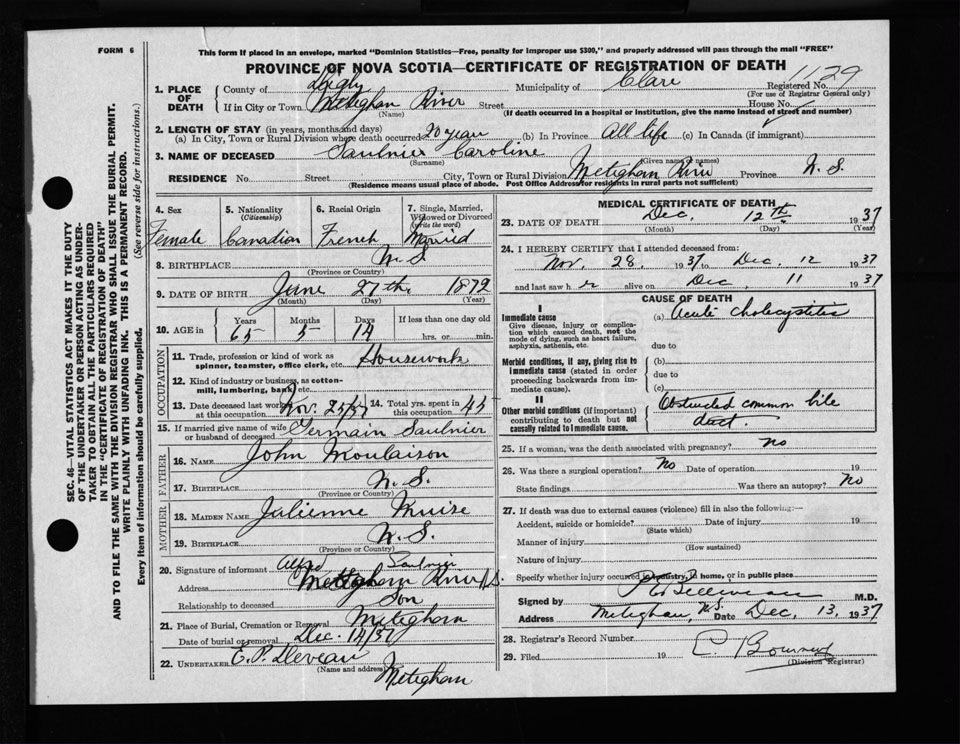 FORM 6
This form if placed in an envelope, marked "Dominion Statistics—Free, penalty for improper use $300," and properly addressed will pass through the mail "FREE"
PROVINCE OF NOVA SCOTIA—CERTIFICATE OF REGISTRATION OF DEATH
1129
1. PLACE OF DEATH
County of Digby Municipality of Clare Registered No.
(For use of Registrar General only)
If in City or Town Meteghan River Street House No.
(Name) (If death occurred in a hospital or institution, give the name instead of street and number)
2. LENGTH OF STAY (in years, months and days)
(a) In City, Town or Rural Division where death occurred 20 years (b) In Province All life (c) In Canada (if immigrant)
3. NAME OF DECEASED Saulnier Caroline
(Surname) (Given name or names)
RESIDENCE No. Street City, Town or Rural Division Meteghan River Province N.S.
(Residence means usual place of abode. Post Office Address for residents in rural parts not sufficient)
SEC. 46—VITAL STATISTICS ACT MAKES IT THE DUTY
OF THE UNDERTAKER OR PERSON ACTING AS UNDER-
TAKER TO OBTAIN ALL THE PARTICULARS REQUIRED
IN THE "CERTIFICATE OF REGISTRATION OF DEATH"
AND TO FILE THE SAME WITH THE DIVISION REGISTRAR WHO SHALL ISSUE THE BURIAL PERMIT.
WRITE PLAINLY WITH UNFADING INK. THIS IS A PERMANENT RECORD.
Every item of information should be carefully supplied. (See reverse side for instructions.)
4. Sex 5. Nationality (Citizenship) 6. Racial Origin 7. Single, Married, Widowed or Divorced (write the word)
Female Canadian French Married
8. BIRTHPLACE N.S.
(Province or Country)
9. DATE OF BIRTH June 27th 1872
(Month) (Day) (Year)
10. AGE in Years Months Days If less than one day old
65 5 14 hrs. or min.
OCCUPATION
11. Trade, profession or kind of work as spinner, teamster, office clerk, etc. Housework
12. Kind of industry or business, as cotton-mill, lumbering, bank, etc.
13. Date deceased last worked at this occupation Nov. 25/37 14. Total yrs. spent in this occupation 45
15. If married give name of wife or husband of deceased Germain Saulnier
FATHER
16. NAME John Moulaison
17. BIRTHPLACE N.S.
(Province or Country)
MOTHER
18. MAIDEN NAME Julienne Muise
19. BIRTHPLACE N.S.
(Province or Country)
20. Signature of informant Alfred Saulnier
Address Meteghan River N.S.
Relationship to deceased Son
21. Place of Burial, Cremation or Removal Meteghan
Date of burial or removal Dec. 14/37
22. UNDERTAKER E.P. Deveau
(Name and address)
Meteghan
MEDICAL CERTIFICATE OF DEATH
23. DATE OF DEATH Dec. 12th 1937
(Month) (Day) (Year)
24. I HEREBY CERTIFY that I attended deceased from:
Nov. 28, 1937 to Dec. 12 1937
and last saw her alive on Dec. 11 1937
CAUSE OF DEATH
I
Immediate cause
Give disease, injury or complication which caused death, not the mode of dying, such as heart failure, asphyxia, asthenia, etc.
(a) Acute cholecystitis
due to
Morbid conditions, if any, giving rise to immediate cause (stated in order proceeding backwards from immediate cause).
(b)
due to
(c)
II
Other morbid conditions (if important) contributing to death but not causally related to immediate cause.
Obstructed common bile
duct.
25. If a woman, was the death associated with pregnancy? No
26. Was there a surgical operation? No Date of operation 19
State findings Was there an autopsy? No
27. If death was due to external causes (violence) fill in also the following:—
Accident, suicide or homicide? Date of injury 19
(State which)
Manner of injury
(How sustained)
Nature of injury
Specify whether injury occurred in industry, in home, or in public place
Signed by P.E. Belliveau M.D.
Address Meteghan, N.S. Date Dec. 13, 1937
28. Registrar's Record Number
29. Filed 19
(Division Registrar)